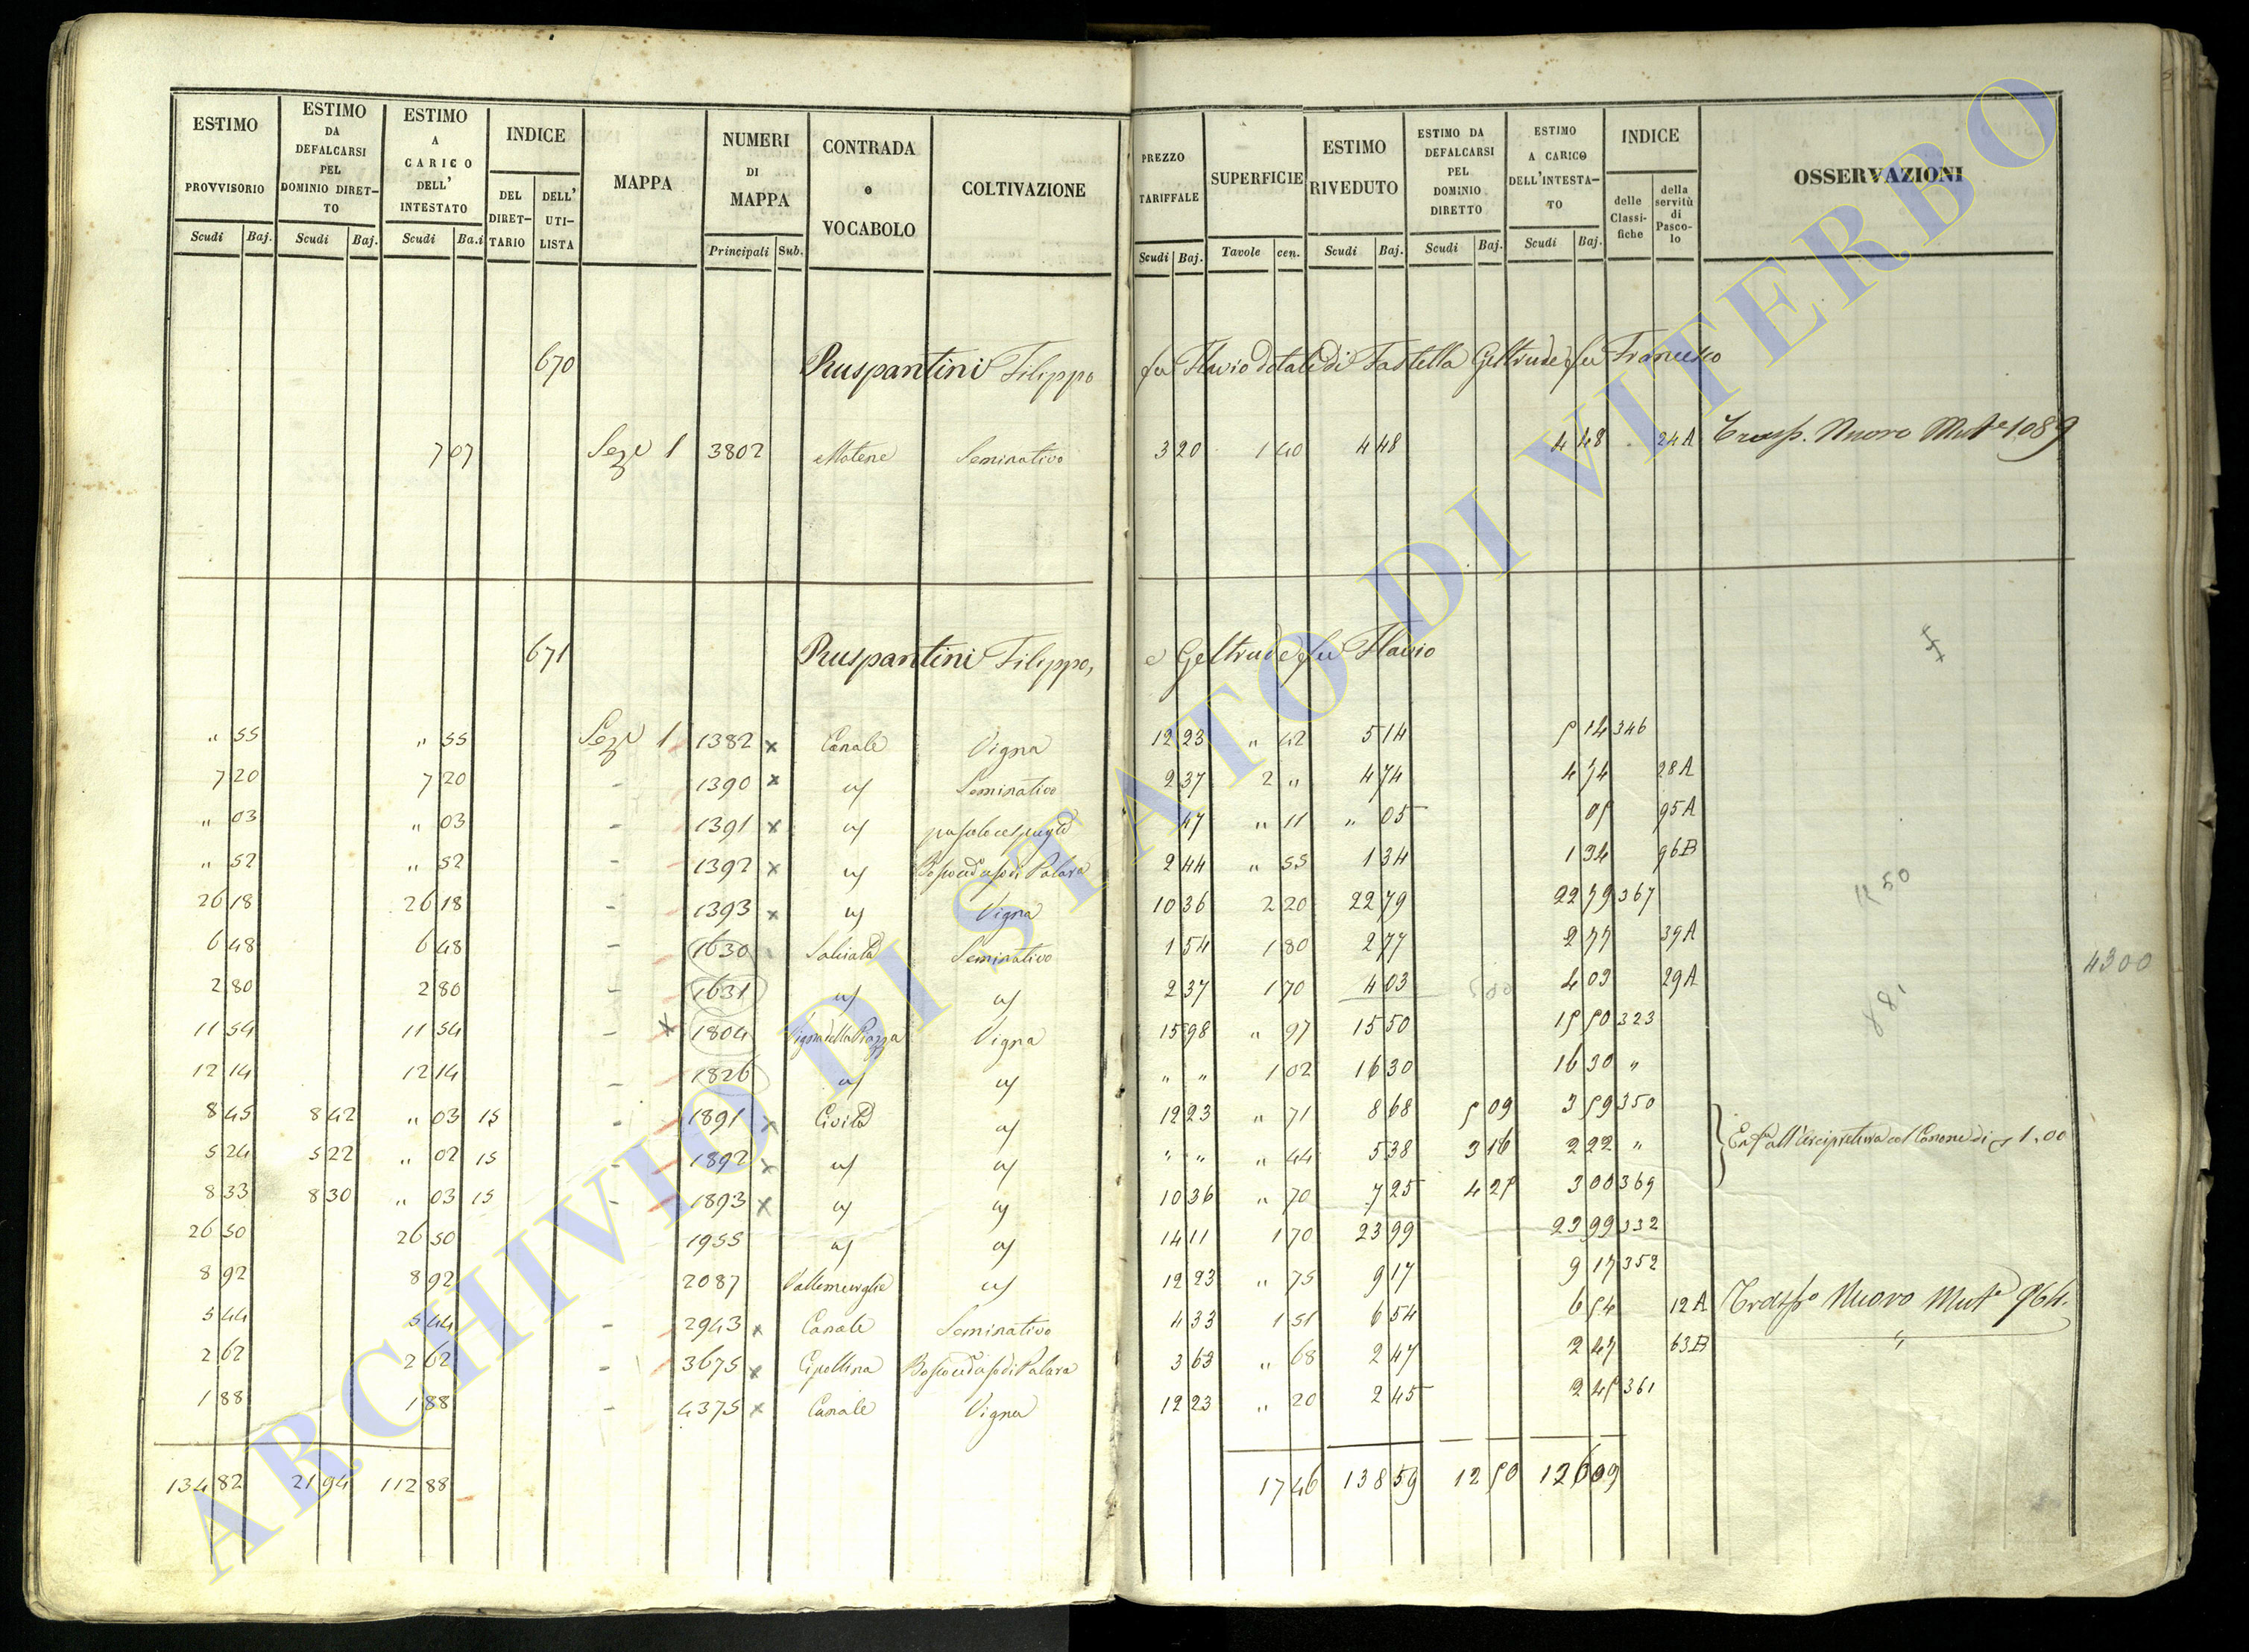 ESTIMO PROVVISORIO Scudi Baj. | ESTIMO DA DEFALCARSI PEL DOMINIO DIRET-TO Scudi Baj. | ESTIMO A CARICO DELL' INTESTATO Scudi Ba.i | INDICE DEL DIRET-TARIO | DELL' UTI-LISTA | MAPPA | NUMERI DI MAPPA Principali Sub. | CONTRADA o VOCABOLO | COLTIVAZIONE | PREZZO TARIFFALE Scudi Baj. | SUPERFICIE Tavole cen. | ESTIMO RIVEDUTO Scudi Baj. | ESTIMO DA DEFALCARSI PEL DOMINIO DIRETTO Scudi Baj. | ESTIMO A CARICO DELL'INTESTA-TO Scudi Baj. | INDICE delle Classi-fiche | della servitù di Pasco-lo | OSSERVAZIONI
670 Ruspantini Filippo fu Flavio dotali di Fastella Geltrude fu Francesco
7 07 Sez.e 1 3802 Matene Seminativo 3 20 1 40 4 48 4 48 24 A Trasp. Nuovo Mut.e 1089
671 Ruspantini Filippo, e Geltrude fu Flavio
" 55 " 55 Sez.e 1 1382 x Canale Vigna 12 23 " 42 5 14 5 14 346
7 20 7 20 - 1390 x " Seminativo 2 37 2 " 4 74 4 74 28 A
" 03 " 03 - 1391 x " 47 " 11 " 05 05 95 A
" 52 " 52 - 1392 x " Bosco ceduo di Palara 2 44 " 55 1 34 1 34 96 B
26 18 26 18 - 1393 x " Vigna 10 36 2 20 22 79 22 79 367
6 48 6 48 - 1630 Salciata Seminativo 1 54 1 80 2 77 2 77 39 A
2 80 2 80 - 1631 " " 2 37 1 70 4 03 4 03 29 A
11 54 11 54 - x 1804 Vigna della Piazza Vigna 15 98 " 97 15 50 15 50 323
12 14 12 14 - 1826 " " " " 1 02 16 30 16 30 "
8 45 8 42 " 03 15 - 1891 x Civita " 12 23 " 71 8 68 5 09 3 59 350
5 24 5 22 " 02 15 - 1892 x " " " " " 44 5 38 3 16 2 22 " Enf.a all'Arcipretura col Canone di 1.00
8 33 8 30 " 03 15 - 1893 x " " 10 36 " 70 7 25 4 25 3 00 369
26 50 26 50 1955 " " 14 11 1 70 23 99 23 99 332
8 92 8 92 2087 " 12 23 " 75 9 17 9 17 352
5 44 5 44 - 2943 x Canale Seminativo 4 33 1 51 6 54 6 54 12 A Trasp.o Nuovo Mut.e 964.
2 62 2 62 - 3675 x Cipollina Bosco ceduo di Palara 3 63 " 68 2 47 2 47 63 B "
1 88 1 88 - 4375 x Canale Vigna 12 23 " 20 2 45 2 45 361
134 82 21 94 112 88 17 46 138 59 12 50 126 09
4300
ARCHIVIO DI STATO DI VITERBO